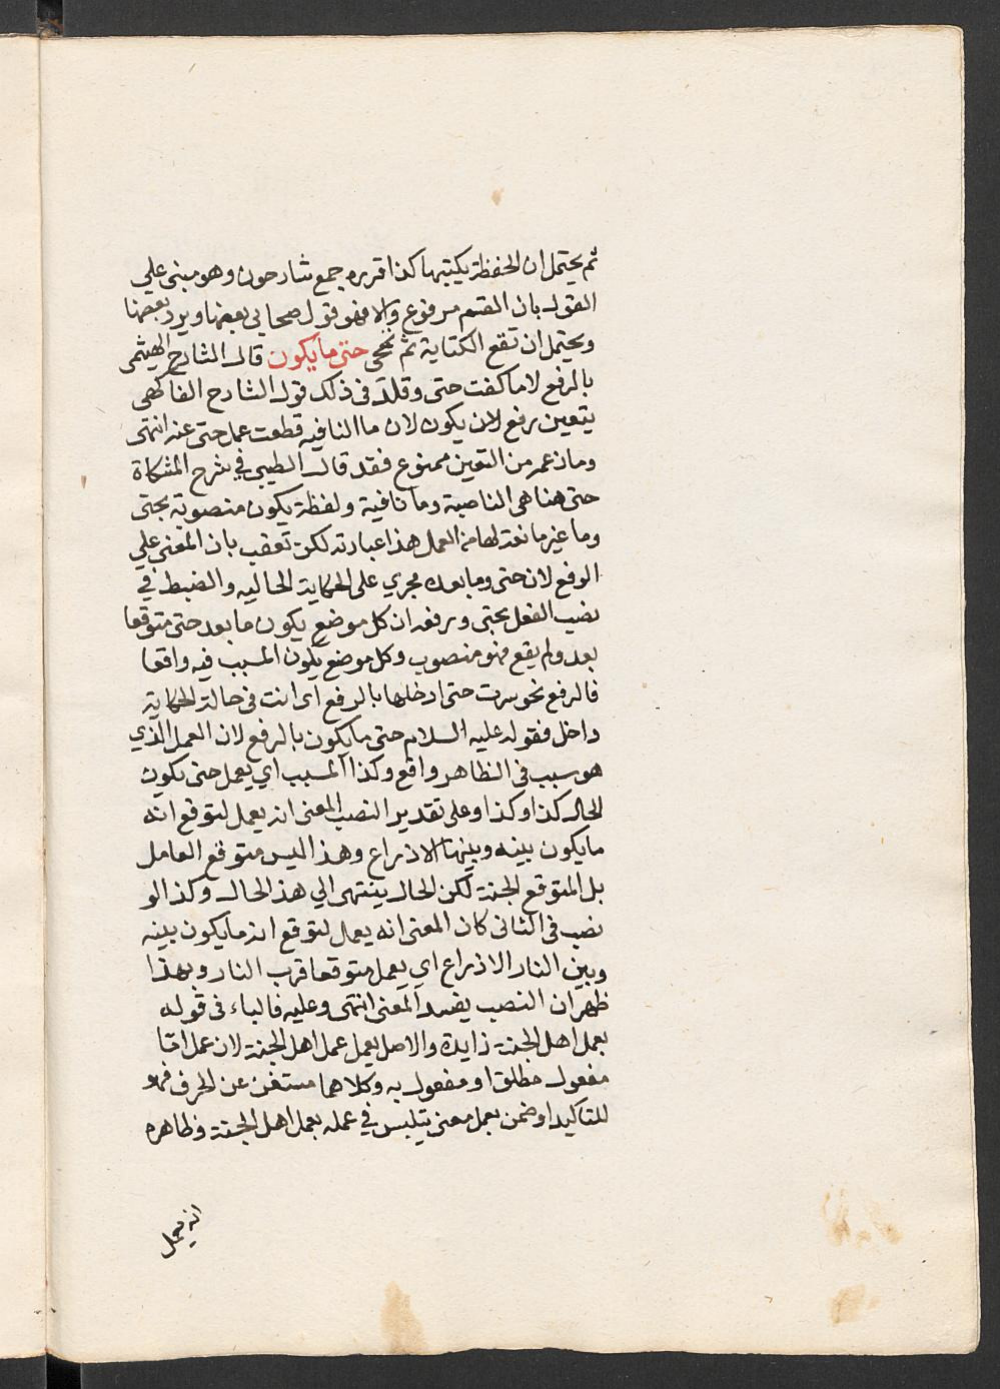 ثم يحتمل ان الحفظة يكتبها كذا قرره جمع شارحون وهو مبني علي
القول بان القسم مرفوع والا فهو قول صحابي بعضها ويرد بعضها
ويحتمل ان تقع الكتابة ثم تمحى حتى ما يكون قال الشارح الهيثمى
بالرفع لا ما كفت حتى وقلد في ذلك قول الشارح الفاكهى
يتعين رفع لان يكون لان ما النافيه قطعت عمل حتى عنه انتهى
وما زعمه من التعين ممنوع فقد قال الطيبى في شرح المشكاة
حتى هنا هى الناصبة وما نافية ولفظة يكون منصوبة بحتى
وما غير مانعة لها من العمل هذا عبارته لكن تعقب بان المعنى علي
الرفع لان حتى وما بعده مجري على الحكاية الحاليه والضبط في
نصب الفعل بحتى ورفعه ان كل موضع يكون ما بعد حتى متوقعا
بعد ولم يقع فهو منصوب وكل موضع يكون المسبب فيه واقعا
فالرفع نحو سرت حتى ادخلها بالرفع اى انت فى حالة الحكاية
داخل فقوله عليه السلام حتى ما يكون بالرفع لان العمل الذي
هو سبب فى الظاهر واقع وكذا المسبب اي يعمل حتى يكون
الحال كذا وكذا وعلى تقدير النصب المعنى انه يعمل لتوقع انه
ما يكون بينه وبينها الا ذراع وهذا ليس متوقع العامل
بل المتوقع الجنة لكن الحال ينتهى الي هذ الحال وكذا لو
نصب فى الثانى كان المعنى انه يعمل لتوقع انه ما يكون بينه
وبين النار الا ذراع اي يعمل متوقعا قرب النار وبهذا
ظهر ان النصب يفسد المعنى انتهى وعليه فالباء فى قوله
بعمل اهل الجنة زايدة والاصل يعمل عمل اهل الجنة لان عمل امّا
مفعول مطلق او مفعول به وكلاهما مستغن عن الحرف فهو
للتاكيد او ضمن يعمل معنى يتلبس في عمله بعمل اهل الجنة وظاهره
انه يعمل